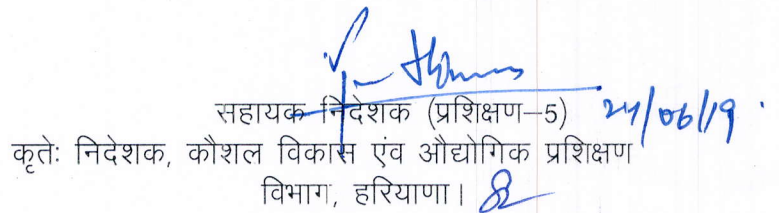 सहायक निदेशक (प्रशिक्षण–5) 24/06/19
कृतेः निदेशक, कौशल विकास एंव औद्योगिक प्रशिक्षण
विभाग, हरियाणा।